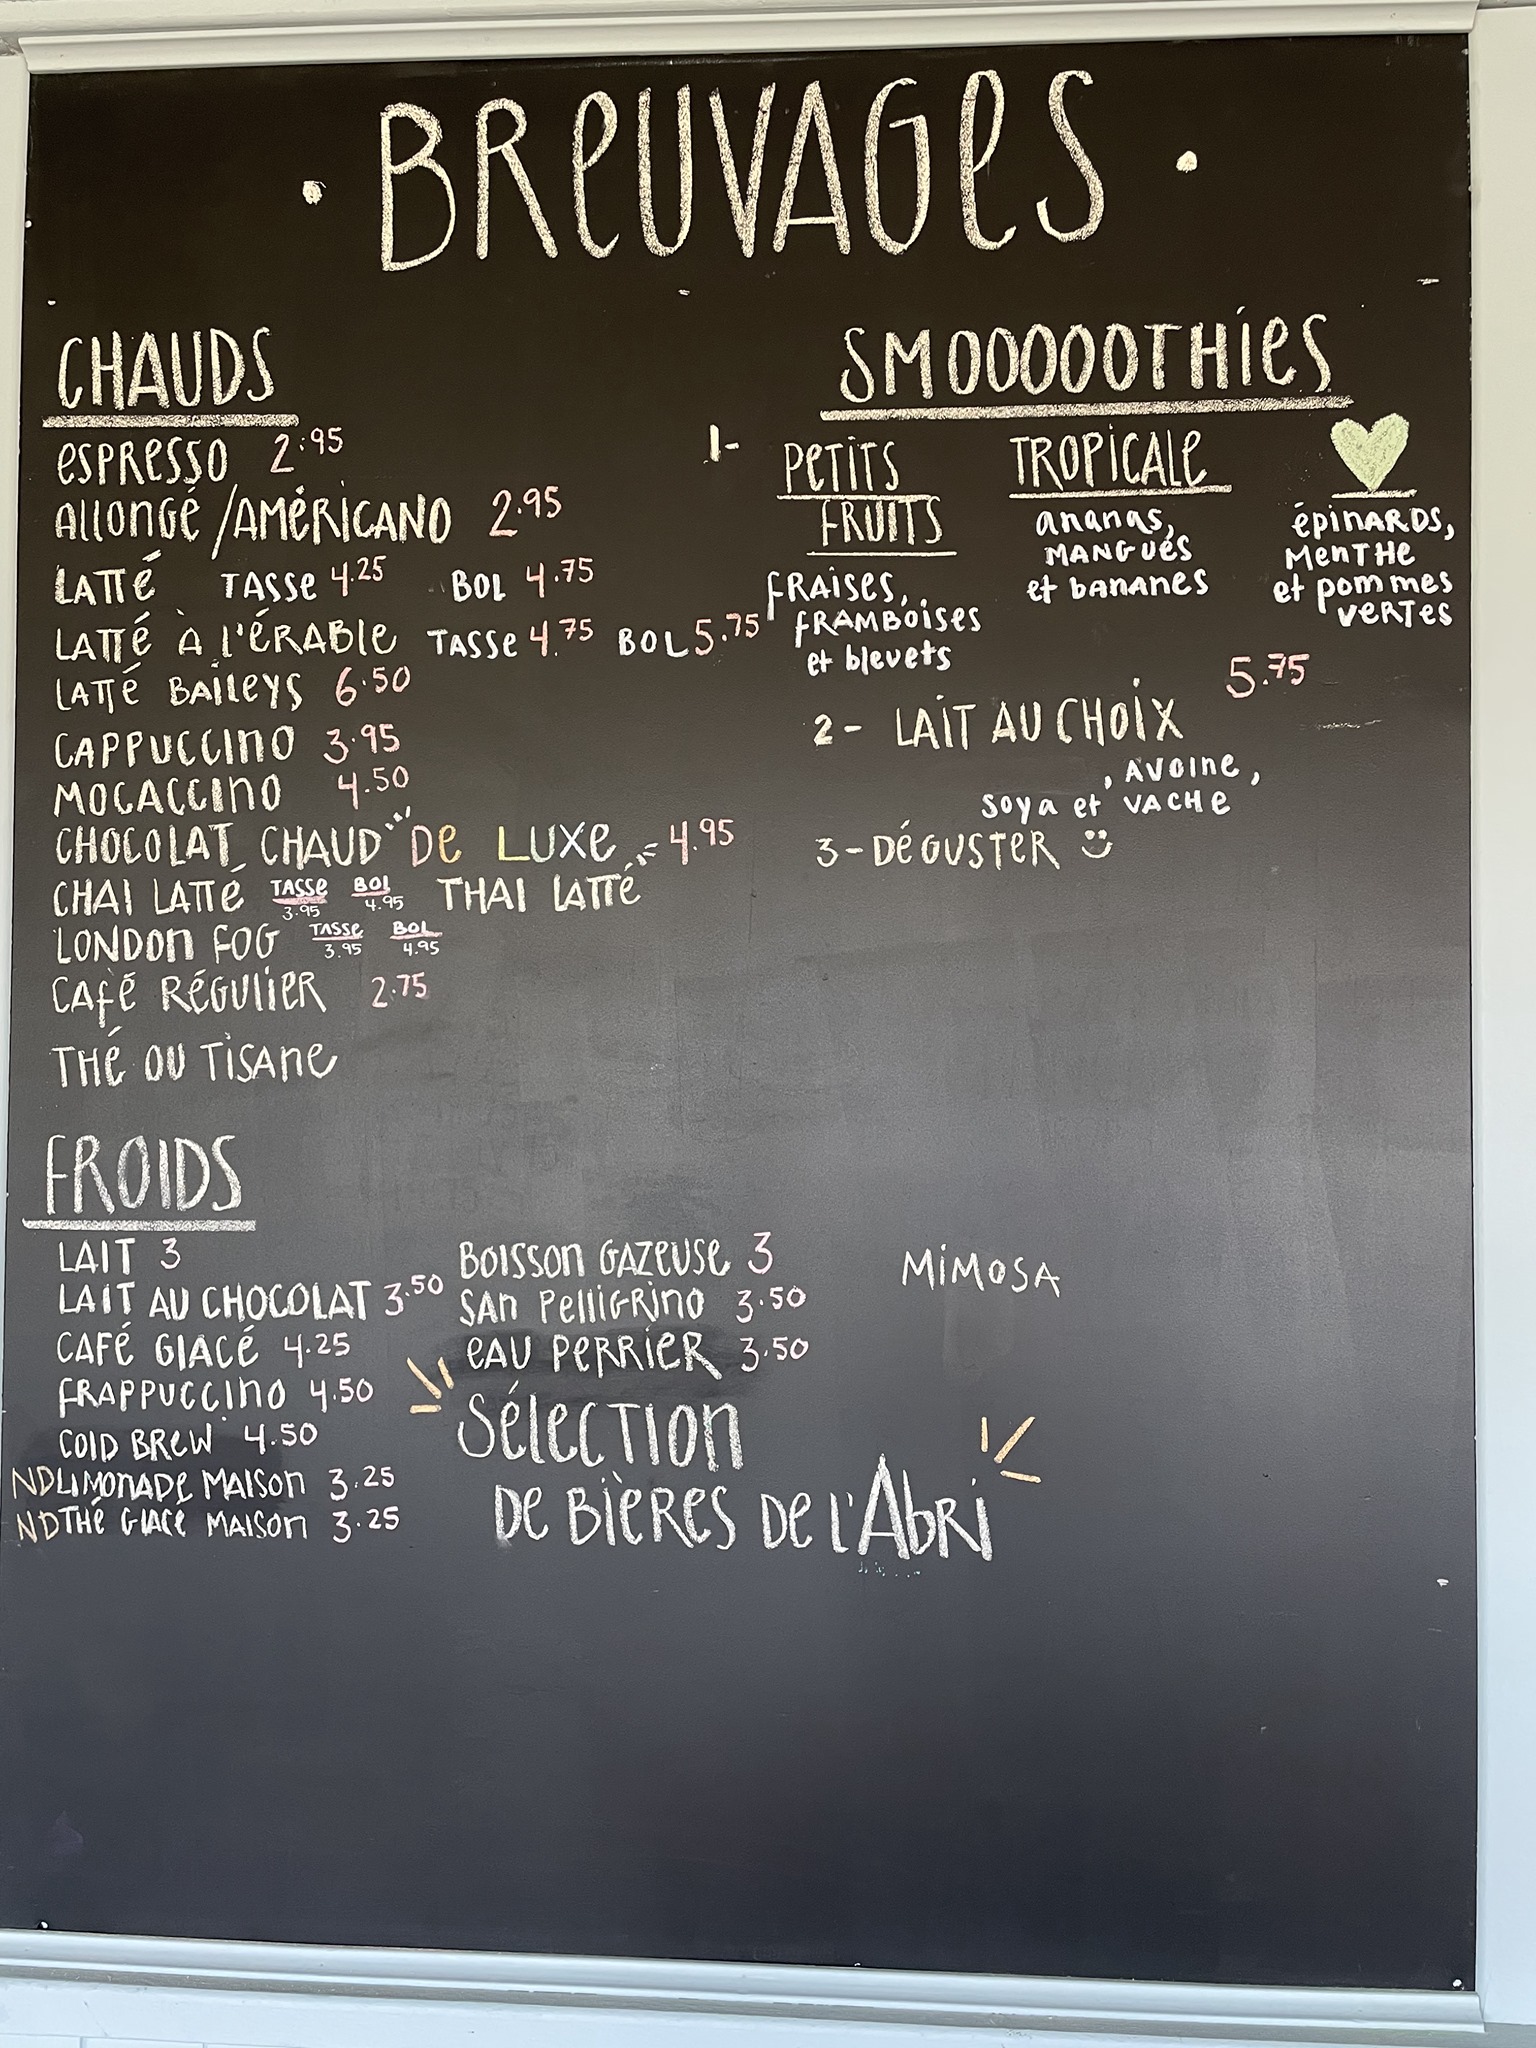 · BREUVAGES ·
CHAUDS
ESPRESSO 2.95
ALLONGÉ / AMÉRICANO 2.95
LATTÉ TASSE 4.25 BOL 4.75
LATTÉ À L'ÉRABLE TASSE 4.75 BOL 5.75
LATTÉ BAILEYS 6.50
CAPPUCCINO 3.95
MOCACCINO 4.50
CHOCOLAT CHAUD DE LUXE 4.95
CHAI LATTÉ TASSE 3.95 BOL 4.95 THAI LATTÉ
LONDON FOG TASSE 3.95 BOL 4.95
CAFÉ RÉGULIER 2.75
THÉ OU TISANE
SMOOOOOTHIES
1- PETITS
FRUITS
FRAISES,
FRAMBOISES
et bleuets
TROPICALE
ananas,
MANGUES
et bananes
éPINARDS,
MENTHE
et pommes
VERTES
5.75
2- LAIT AU CHOIX
, AVOINE,
SOYA et VACHE
3- DÉGUSTER
FROIDS
LAIT 3
LAIT AU CHOCOLAT 3.50
CAFÉ GLACÉ 4.25
FRAPPUCCINO 4.50
COLD BREW 4.50
ND LIMONADE MAISON 3.25
ND THÉ GLACÉ MAISON 3.25
BOISSON GAZEUSE 3
SAN PELLIGRINO 3.50
EAU PERRIER 3.50
SÉLECTION
DE BIÈRES DE L'ABRI
MIMOSA